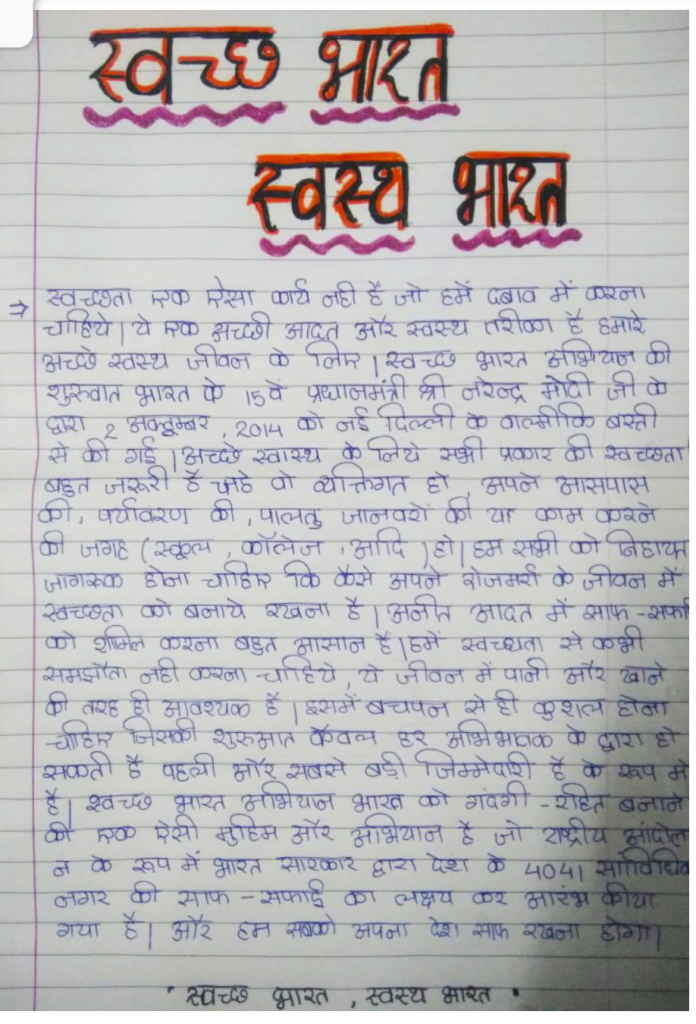 स्वच्छ भारत
स्वस्थ भारत
⇒ स्वच्छता एक ऐसा कार्य नही है जो हमें दबाव में करना
चाहिये। ये एक अच्छी आदत और स्वस्थ तरीका है हमारे
अच्छे स्वस्थ जीवन के लिए। स्वच्छ भारत अभियान की
शुरुवात भारत के 15वें प्रधानमंत्री श्री नरेन्द्र मोदी जी के
द्वारा 2 अक्टूम्बर, 2014 को नई दिल्ली के वाल्मीकि बस्ती
से की गई। अच्छे स्वास्थ के लिये सभी प्रकार की स्वच्छता
बहुत जरूरी है चाहे वो व्यक्तिगत हो, अपने आसपास
की, पर्यावरण की, पालतु जानवरों की या काम करने
की जगह (स्कूल, कॉलेज, आदि) हो। हम सभी को निहायत
जागरूक होना चाहिए कि कैसे अपने रोजमर्रा के जीवन में
स्वच्छता को बनाये रखना है। अनीत आदत में साफ-सफाई
को शामिल करना बहुत आसान है। हमें स्वच्छता से कभी
समझौता नही करना चाहिये, ये जीवन में पानी और खाने
की तरह ही आवश्यक है। इसमें बचपन से ही कुशल होना
चाहिए जिसकी शुरुआत केवल हर अभिभावक के द्वारा हो
सकती है पहली और सबसे बड़ी जिम्मेदारी है के रूप में
है। स्वच्छ भारत अभियान भारत को गंदगी-रहित बनाने
की एक ऐसी मुहिम और अभियान है जो राष्ट्रीय आंदोल
न के रूप में भारत सारकार द्वारा देश के 4041 सांविधिक
नगर की साफ-सफाई का लक्षय कर आरंभ कीया
गया है। और हम सबको अपना देश साफ रखना होगा।
" स्वच्छ भारत, स्वस्थ भारत "